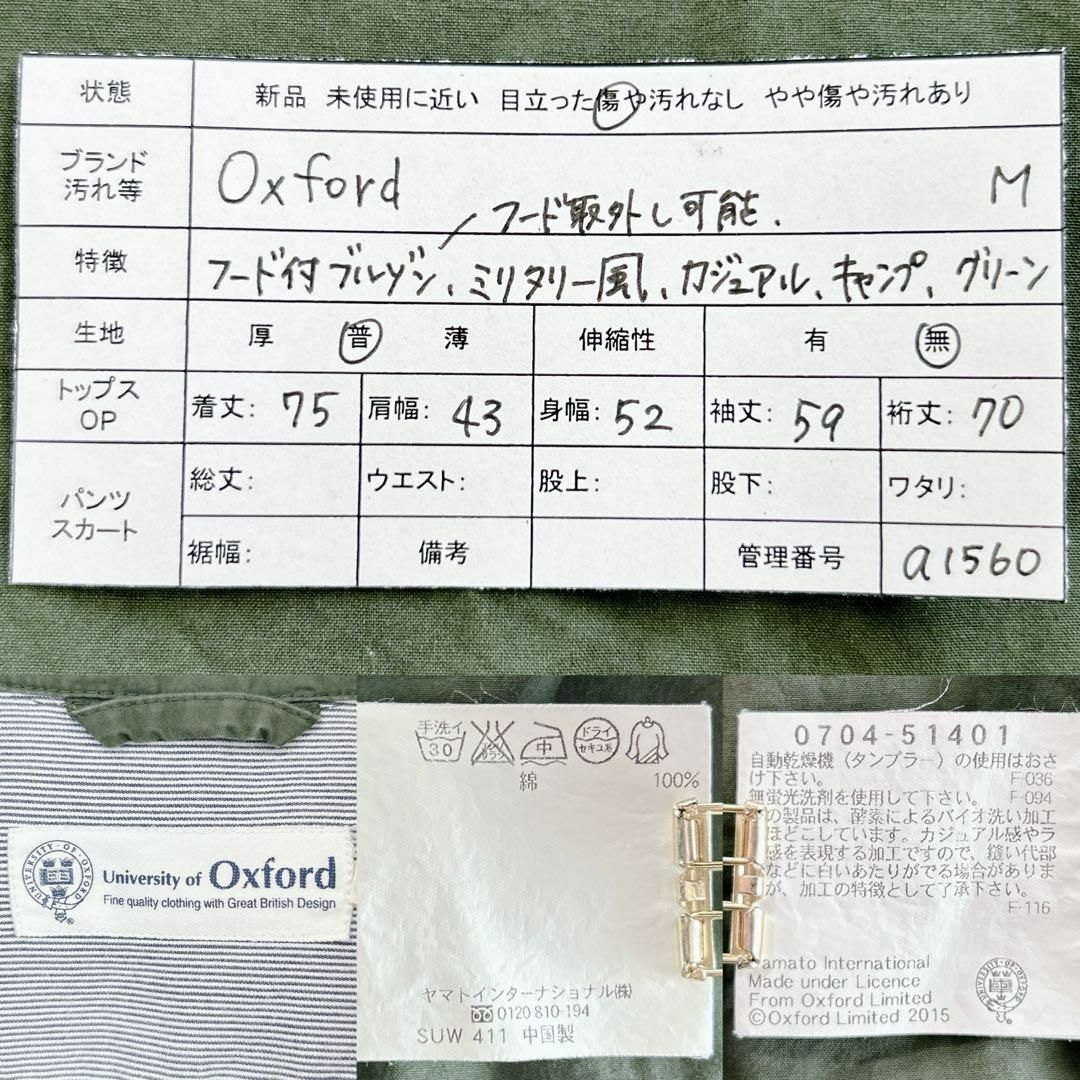 状態 新品 未使用に近い 目立った傷や汚れなし やや傷や汚れあり
ブランド
汚れ等
Oxford M
フード取外し可能.
特徴
フード付ブルゾン、ミリタリー風、カジュアル、キャンプ、グリーン
生地 厚 普 薄 伸縮性 有 無
トップス
OP
着丈: 75 肩幅: 43 身幅: 52 袖丈: 59 裄丈: 70
パンツ
スカート
総丈: ウエスト: 股上: 股下: ワタリ:
裾幅: 備考 管理番号 a1560
UNIVERSITY OF OXFORD
University of Oxford
Fine quality clothing with Great British Design
手洗イ
30 中 ドライ
セキユ系
綿 100%
ヤマトインターナショナル(株)
0120 810-194
SUW 411 中国製
0704-51401
自動乾燥機(タンブラー)の使用はおさ
け下さい。 F-036
無蛍光洗剤を使用して下さい。 F-094
の製品は、酵素によるバイオ洗い加工
ほどこしています。カジュアル感やラ
感を表現する加工ですので、縫い代部
などに白いあたりがでる場合がありま
が、加工の特徴として了承下さい。
F-116
Yamato International
Made under Licence
From Oxford Limited
©Oxford Limited 2015